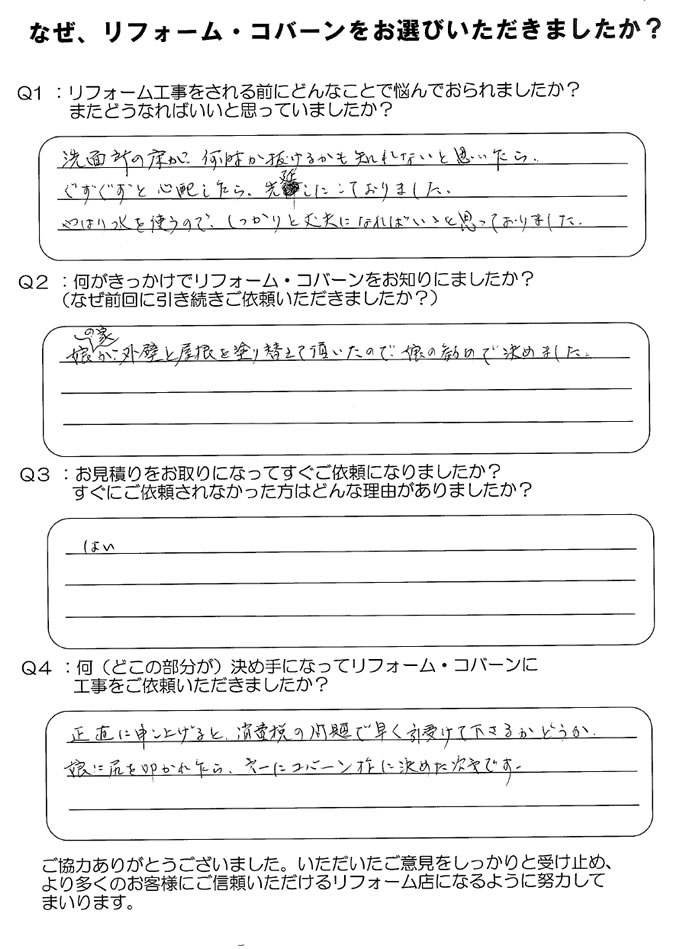 なぜ、リフォーム・コバーンをお選びいただきましたか？
Q1 ：リフォーム工事をされる前にどんなことで悩んでおられましたか？
またどうなればいいと思っていましたか？
洗面所の床が、何時か抜けるかも知れないと思いたら、
ぐずぐずと心配したら、先延しにしておりました。
やはり水を使うので、しっかりと丈夫になればいゝと思っておりました。
Q2 ：何がきっかけでリフォーム・コバーンをお知りにましたか？
（なぜ前回に引き続きご依頼いただきましたか？）
の家
娘が、外壁と屋根を塗り替えて頂いたので、娘の勧めで決めました。
Q3 ：お見積りをお取りになってすぐご依頼になりましたか？
すぐにご依頼されなかった方はどんな理由がありましたか？
はい
Q4 ：何（どこの部分が）決め手になってリフォーム・コバーンに
工事をご依頼いただきましたか？
正直に申し上げると、消費税の問題で早く引受けて下さるかどうか、
娘に尻を叩かれたら、コバーン様に決めた次第です。
ご協力ありがとうございました。いただいたご意見をしっかりと受け止め、
より多くのお客様にご信頼いただけるリフォーム店になるように努力して
まいります。